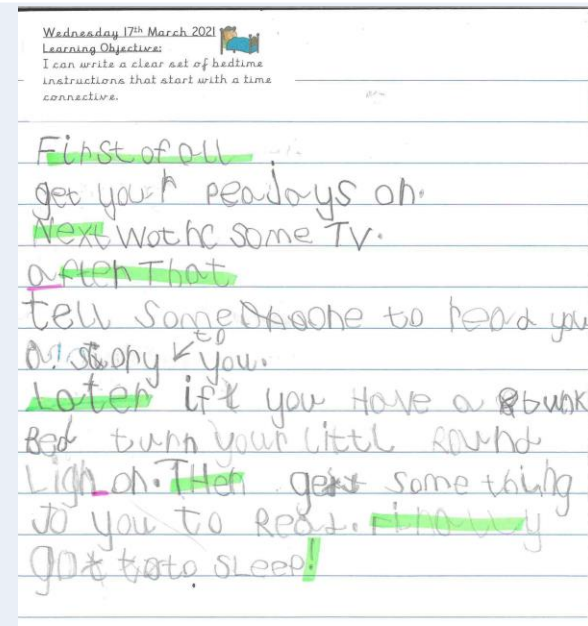 Wednesday 17th March 2021
Learning Objective:
I can write a clear set of bedtime
instructions that start with a time
connective.
First of all
get your peadays on.
Next Wothc some TV.
after That
tell some one to read you
a story to you.
Later if you Have a bunk
Bed turn your littl Round
Ligh on. THen get some thing
to you to Read. Finally
go to sleep!